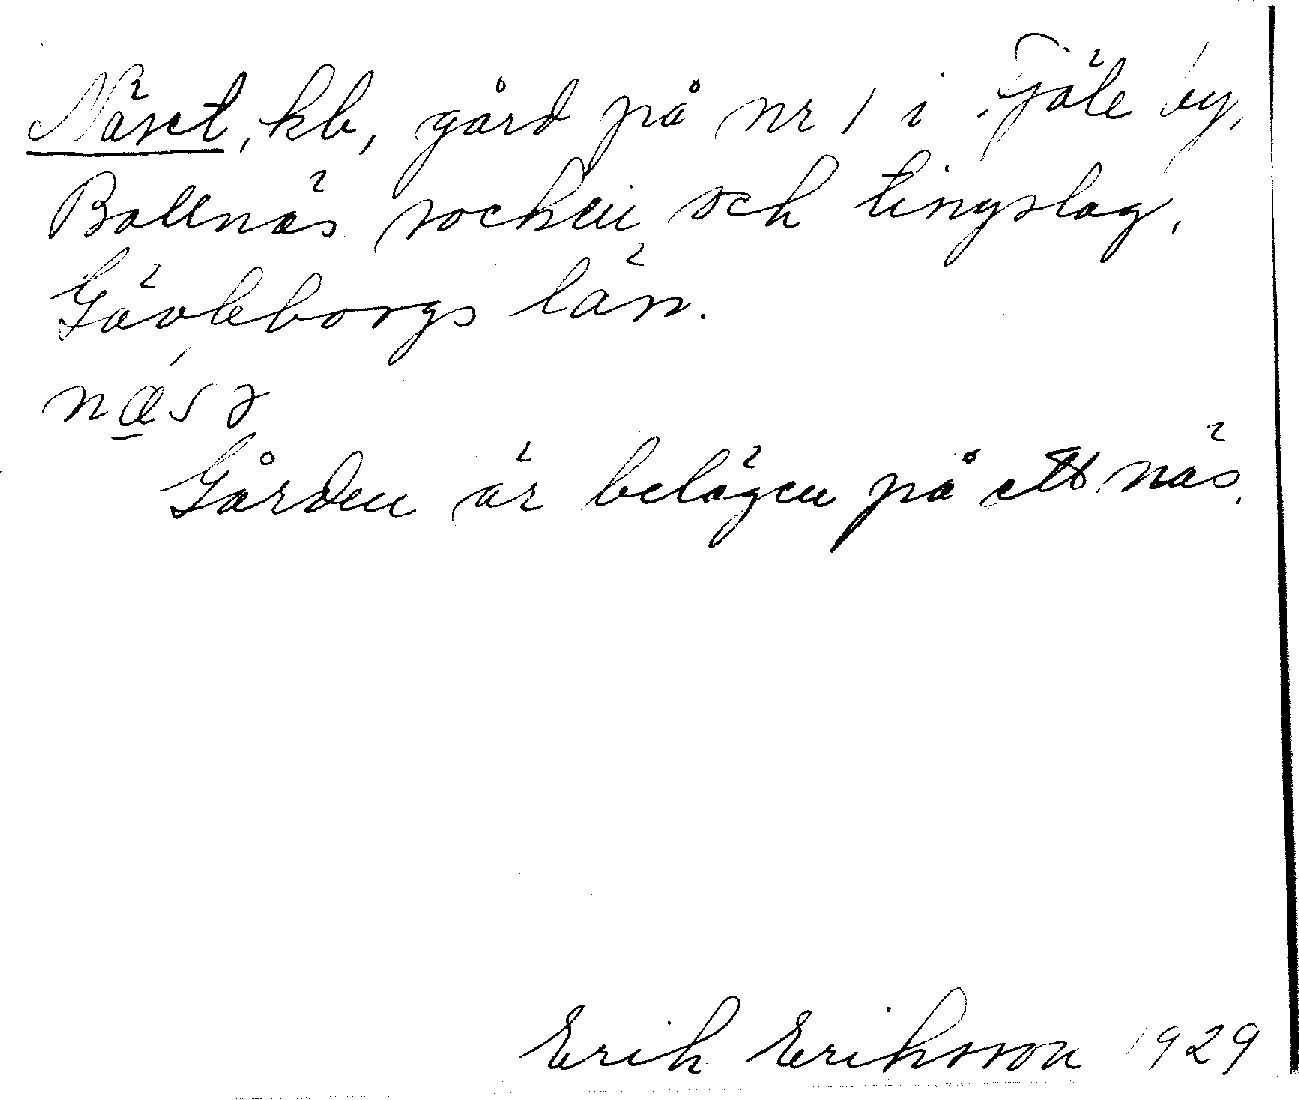 Näset, kb, gård på nr 1 i Fjäle by,
Bollnäs socken och tingslag,
Gävleborgs län.
nǽ̲sə
Gården är belägen på ett näs.
Erik Eriksson 1929